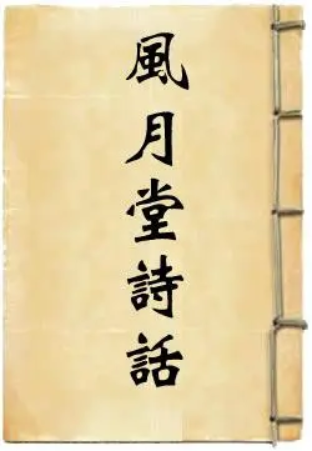 風月堂詩話